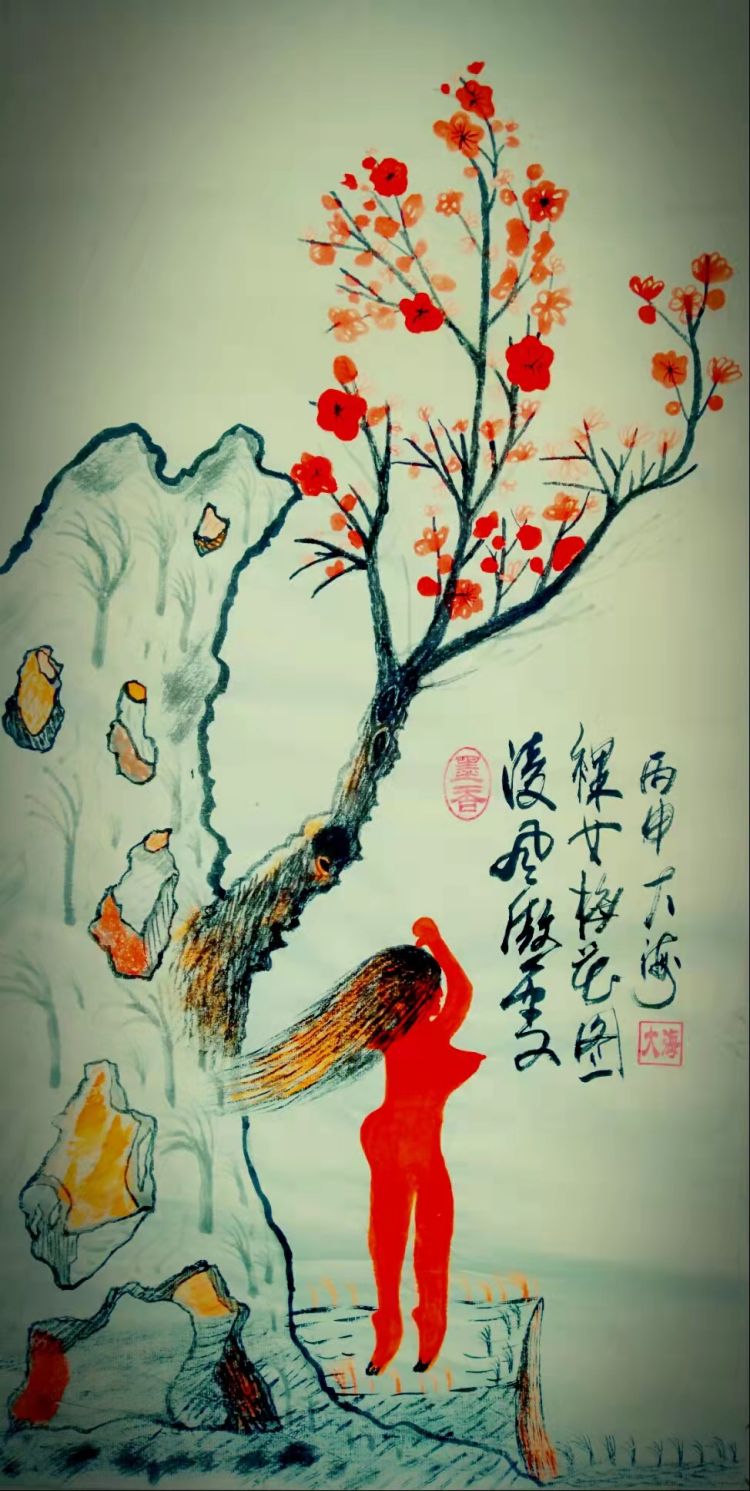 丙申大海
大海
裸女梅花图
凌风傲雪